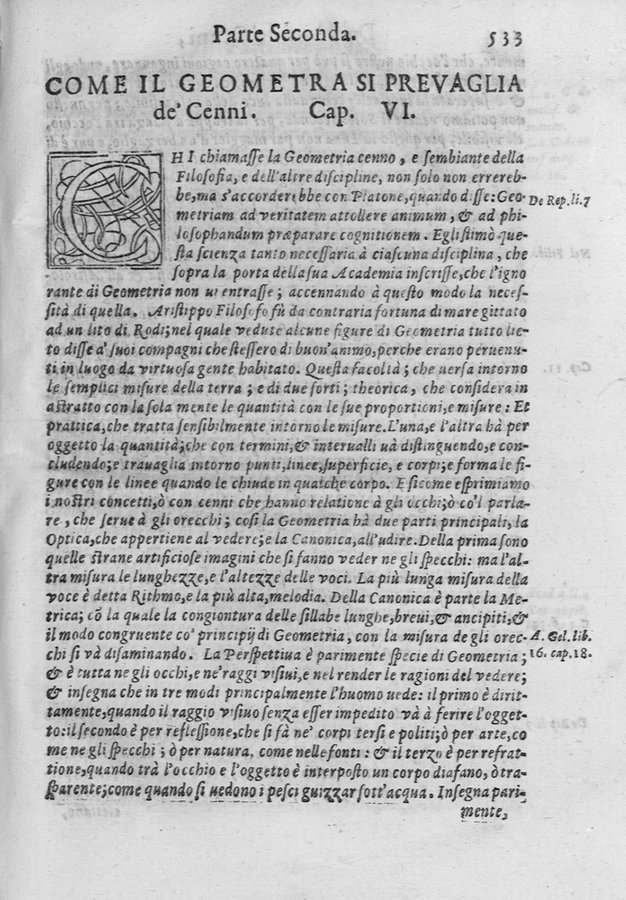 Parte Seconda. 533
COME IL GEOMETRA SI PREVAGLIA
de' Cenni. Cap. VI.
CHI chiamasse la Geometria cenno, e sembiante della
Filosofia, e dell'altre discipline, non solo non errereb-
be, ma s'accorderebbe con Platone, quando disse: Geo
metriam ad veritatem attollere animum, & ad phi-
losophandum præparare cognitionem. Egli stimò que-
sta scienza tanto necessaria à ciascuna disciplina, che
sopra la porta della sua Academia inscrisse, che l'igno
rante di Geometria non ui entrasse; accennando à questo modo la neces-
sità di quella. Aristippo Filosofo fù da contraria fortuna di mare gittato
ad un lito di Rodi; nel quale vedute alcune figure di Geometria tutto lie-
to disse à suoi compagni che stessero di buon'animo, perche erano peruenu-
ti in luogo da virtuosa gente habitato. Questa facoltà; che uersa intorno
le semplici misure della terra; e di due sorti; theorica, che considera in
astratto con la sola mente le quantità con le sue proportioni, e misure: Et
prattica, che tratta sensibilmente intorno le misure. L'una, e l'altra hà per
oggetto la quantità; che con termini, & interualli uà distinguendo, e con-
cludendo; e trauaglia intorno punti, linee, superficie, e corpi; e forma le fi-
gure con le linee quando le chiude in qualche corpo. E si come esprimiamo
i nostri concetti, ò con cenni che hanno relatione à gli occhi; ò co'l parla-
re, che serue à gli orecchi; così la Geometria hà due parti principali, la
Optica, che appertiene al vedere; e la Canonica, all'udire. Della prima sono
quelle strane artificiose imagini che si fanno veder ne gli specchi: ma l'al-
tra misura le lunghezze, e l'altezze delle voci. La più lunga misura della
voce è detta Rithmo, e la più alta, melodia. Della Canonica è parte la Me-
trica; cō la quale la congiontura delle sillabe lunghe, breui, & ancipiti, &
il modo congruente co' principij di Geometria, con la misura de gli orec-
chi si và disaminando. La Perspettiua è parimente specie di Geometria;
& è tutta ne gli occhi, e ne' raggi visiui, e nel render le ragioni del vedere;
& insegna che in tre modi principalmente l'huomo uede: il primo è dirit-
tamente, quando il raggio visiuo senza esser impedito và à ferire l'ogget-
to: il secondo è per reflessione, che si fà ne' corpi tersi e politi; ò per arte, co
me ne gli specchi; ò per natura, come nelle fonti: & il terzo è per refrat-
tione, quando trà l'occhio e l'oggetto è interposto un corpo diafano, ò tra-
sparente; come quando si uedono i pesci guizzar sott'acqua. Insegna pari-
mente,
De Rep. li. 7
A. Gel. lib.
16. cap. 18.